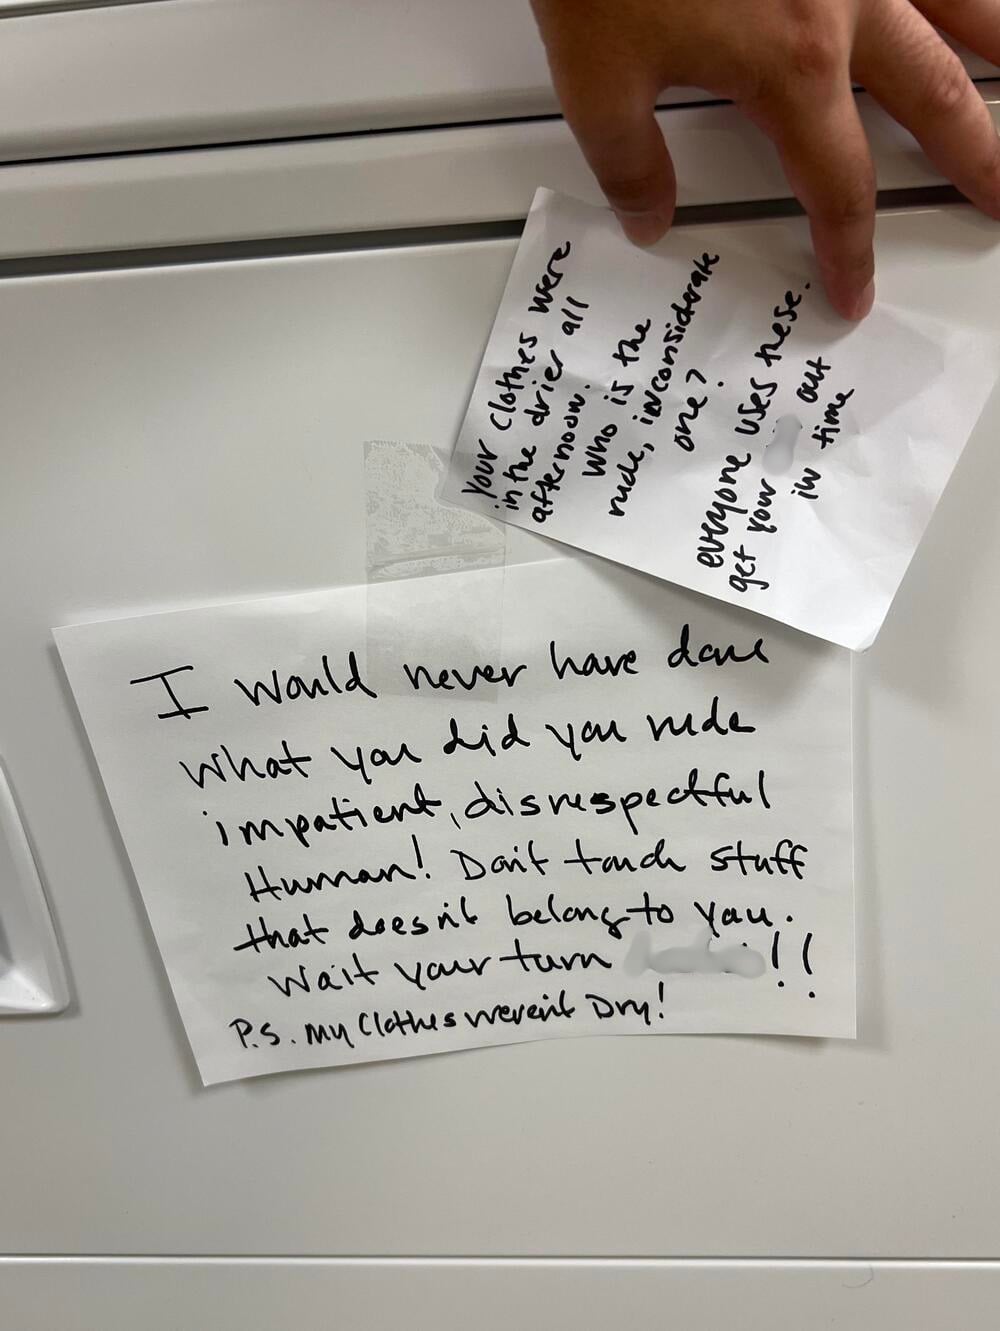 Your clothes were
in the drier all
afternoon.
Who is the
rude, inconsiderate
one?
everyone uses these.
get your out
in time
I would never have done
what you did you rude
impatient, disrespectful
Human! Don't touch stuff
that doesn't belong to you.
Wait your turn !!
P.S. My Clothes weren't Dry!